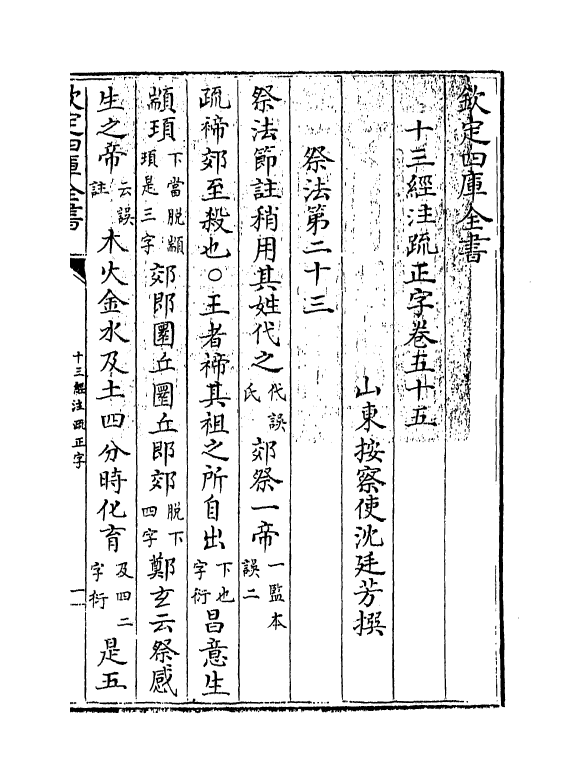 欽定四庫全書
十三經注疏正字卷五十五
山東按察使沈廷芳撰
祭法第二十三
祭法節註稍用其姓代之代誤氏郊祭一帝一監本誤二
疏禘郊至殺也○王者禘其祖之所自出下也字衍昌意生
顓頊下當脫顓頊是三字郊即圜丘圜丘即郊脫下四字鄭玄云祭感
生之帝云誤註木火金水及土四分時化育及四二字衍是五
欽定四庫全書
十三經注疏正字
一